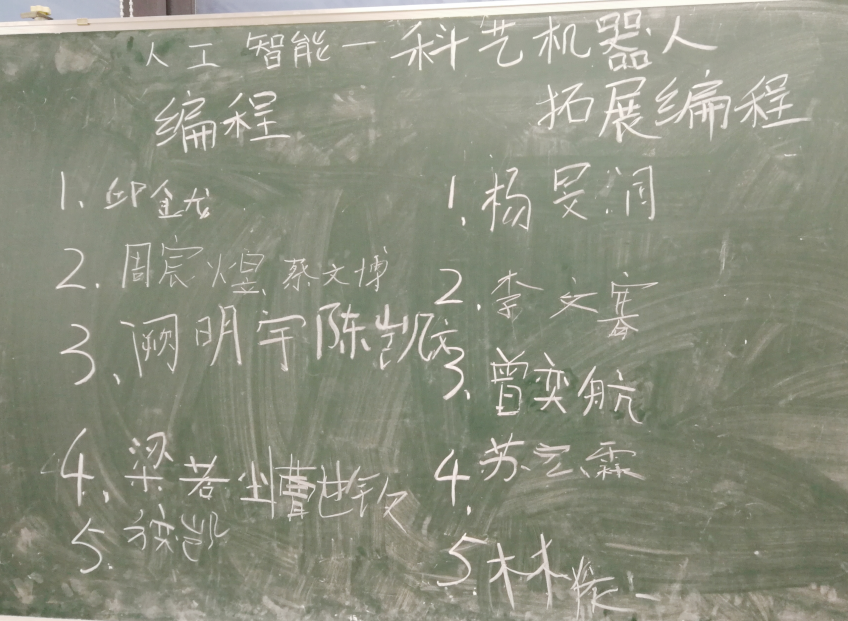 人工智能一科艺机器人
编程
拓展编程
1. 邱金龙
1. 杨旻润
2. 周宸煌 蔡文博
2. 李文
3. 阙明宇 陈凯文
3. 曾奕航
4. 梁若尘 曹世钦
4. 苏云霖
5. 凯
5. 林